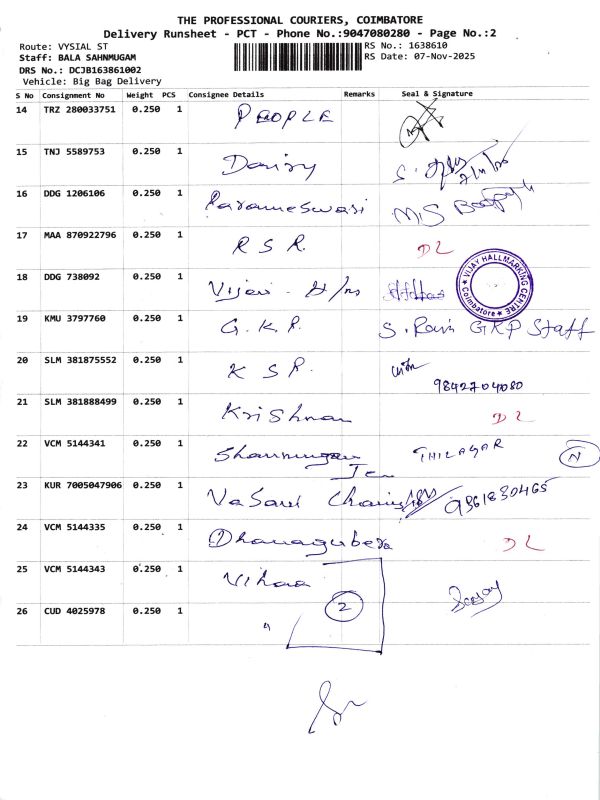 THE PROFESSIONAL COURIERS, COIMBATORE
Delivery Runsheet - PCT - Phone No.:9047080280 - Page No.:2
Route: VYSIAL ST RS No.: 1638610
Staff: BALA SAHNMUGAM RS Date: 07-Nov-2025
DRS No.: DCJB163861002
Vehicle: Big Bag Delivery
S No Consignment No Weight PCS Consignee Details Remarks Seal & Signature
14 TRZ 280033751 0.250 1 PEOPLE
15 TNJ 5589753 0.250 1 Daisy
16 DDG 1206106 0.250 1 Parameswari M/S
17 MAA 870922796 0.250 1 R S R. DL
VIJAY HALLMARKING CENTRE
Coimbatore
18 DDG 738092 0.250 1 Vijai - H/m
19 KMU 3797760 0.250 1 G.K.R. S. Ravi GKP Staff
20 SLM 381875552 0.250 1 K S R.
9842704080
21 SLM 381888499 0.250 1 Krishnan DL
22 VCM 5144341 0.250 1 Shanmugam THILAGAR N
Jew
23 KUR 7005047906 0.250 1 VaSavi 9361830465
24 VCM 5144335 0.250 1 Dhanagubera DL
25 VCM 5144343 0.250 1 Vihaa
26 CUD 4025978 0.250 1 " 2